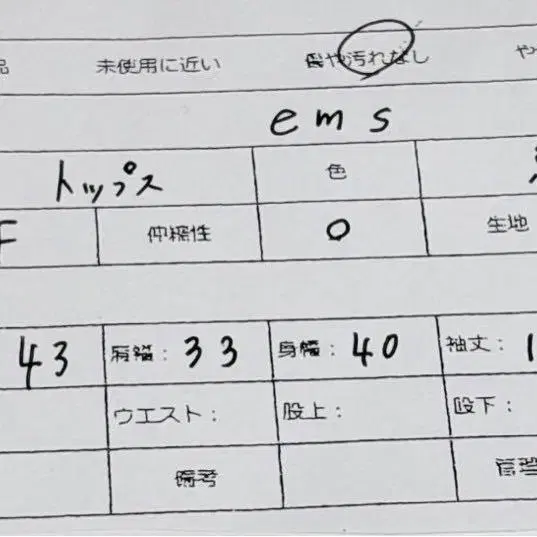 品 未使用に近い 傷や汚れなし や
ems
トップス 色
F 伸縮性 O 生地
43 肩幅: 33 身幅: 40 袖丈: 1
ウエスト: 股上: 股下:
備考 管理